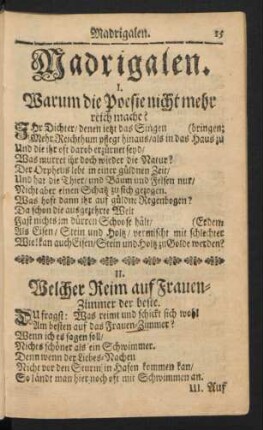 Madrigalen. 25
Madrigalen.
I.
Warum die Poesie nicht mehr
reich mache?
IHr Dichter/ denen jetzt das Singen (bringen;
Mehr Reichthum pflegt hinaus/ als in das Haus zu
Und die ihr oft darob erzürnet seyd/
Was murret ihr doch wieder die Natur?
Der Orpheus lebt in einer güldnen Zeit/
Und hat die Thier/ und Bäum und Felsen nur/
Nicht aber einen Schatz zu sich gezogen.
Was hoft dann ihr auf güldne Regenbogen?
Da schon die ausgezehrte Welt
Fast nichts im dürren Schoose hält/ (Erden:
Als Eisen/ Stein und Holtz/ vermischt mit schlechter
Wie kan auch Eisen/ Stein und Holtz zu Golde werden?
II.
Welcher Reim auf Frauen-
Zimmer der beste.
DU fragst: Was reimt und schickt sich wohl
Am besten auf das Frauen-Zimmer?
Wenn ich es sagen soll/
Nichts schöner als ein Schwimmer.
Denn wenn der Liebes-Nachen
Nicht vor den Sturm in Hafen kommen kan/
So ländt man hier noch oft mit Schwimmen an.
III. Auf